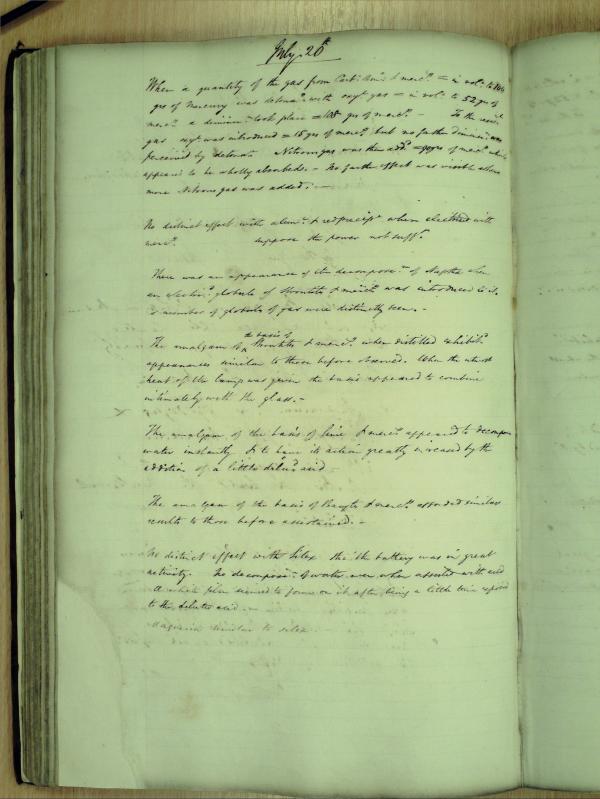 July. 26th
When a quantity of the gas from Carb: Am: & merc.y = in vol: to
grs of Mercury was detona.d with oxy. gas = in vol: to 52 grs of
merc.y a diminu.n took place = 108 grs of merc.y - To the resid.l
gas oxy. was introduced = 15 grs of merc.y but no further diminu.n was
perceived by detona.n Nitrous gas was then add.d = grs of merc.y which
appeared to be wholly absorbed. - No further effect was visible when
more Nitrous gas was added. -
No distinct effect with alum.n & red precip.t when electrised with
merc.y suppose the power not suff.t
There was an appearance of the decompos.n of Naptha when
an electris.d globule of Strontites & merc.y was introduced to it.
a number of globules of gas were distinctly seen. -
The amalgam of the basis of Strontites & merc.y when distilled exhibit.d
appearances similar to those before observed. When the utmost
heat of the lamp was given the basis appeared to combine
intimately with the glass. -
The amalgam of the basis of lime & merc.y appeared to decompose
water instantly & to have its action greatly increased by the
addition of a little dilu.d acid -
The amalgam of the basis of Barytes & merc.y afforded similar
results to those before ascertained. -
No distinct effect with Silex tho' the battery was in great
activity. No decompos.n of water even when assisted with acid
A white film seemed to form on it after being a little time exposed
to the diluted acid. -
Magnesia similar to silex. -